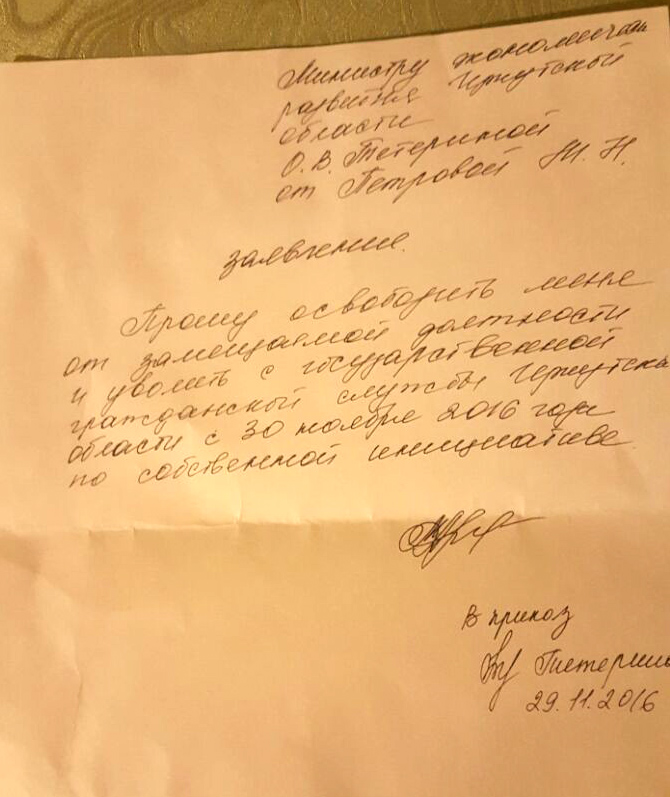 Министру экономическ
развития Иркутской
области
О.В. Тетериной
от Петровой М.Н.
заявление.
Прошу освободить меня
от замещаемой должности
и уволить с государственной
гражданской службы Иркутска
области с 30 ноября 2016 года
по собственной инициативе
В приказ
Тетерин
29.11.2016